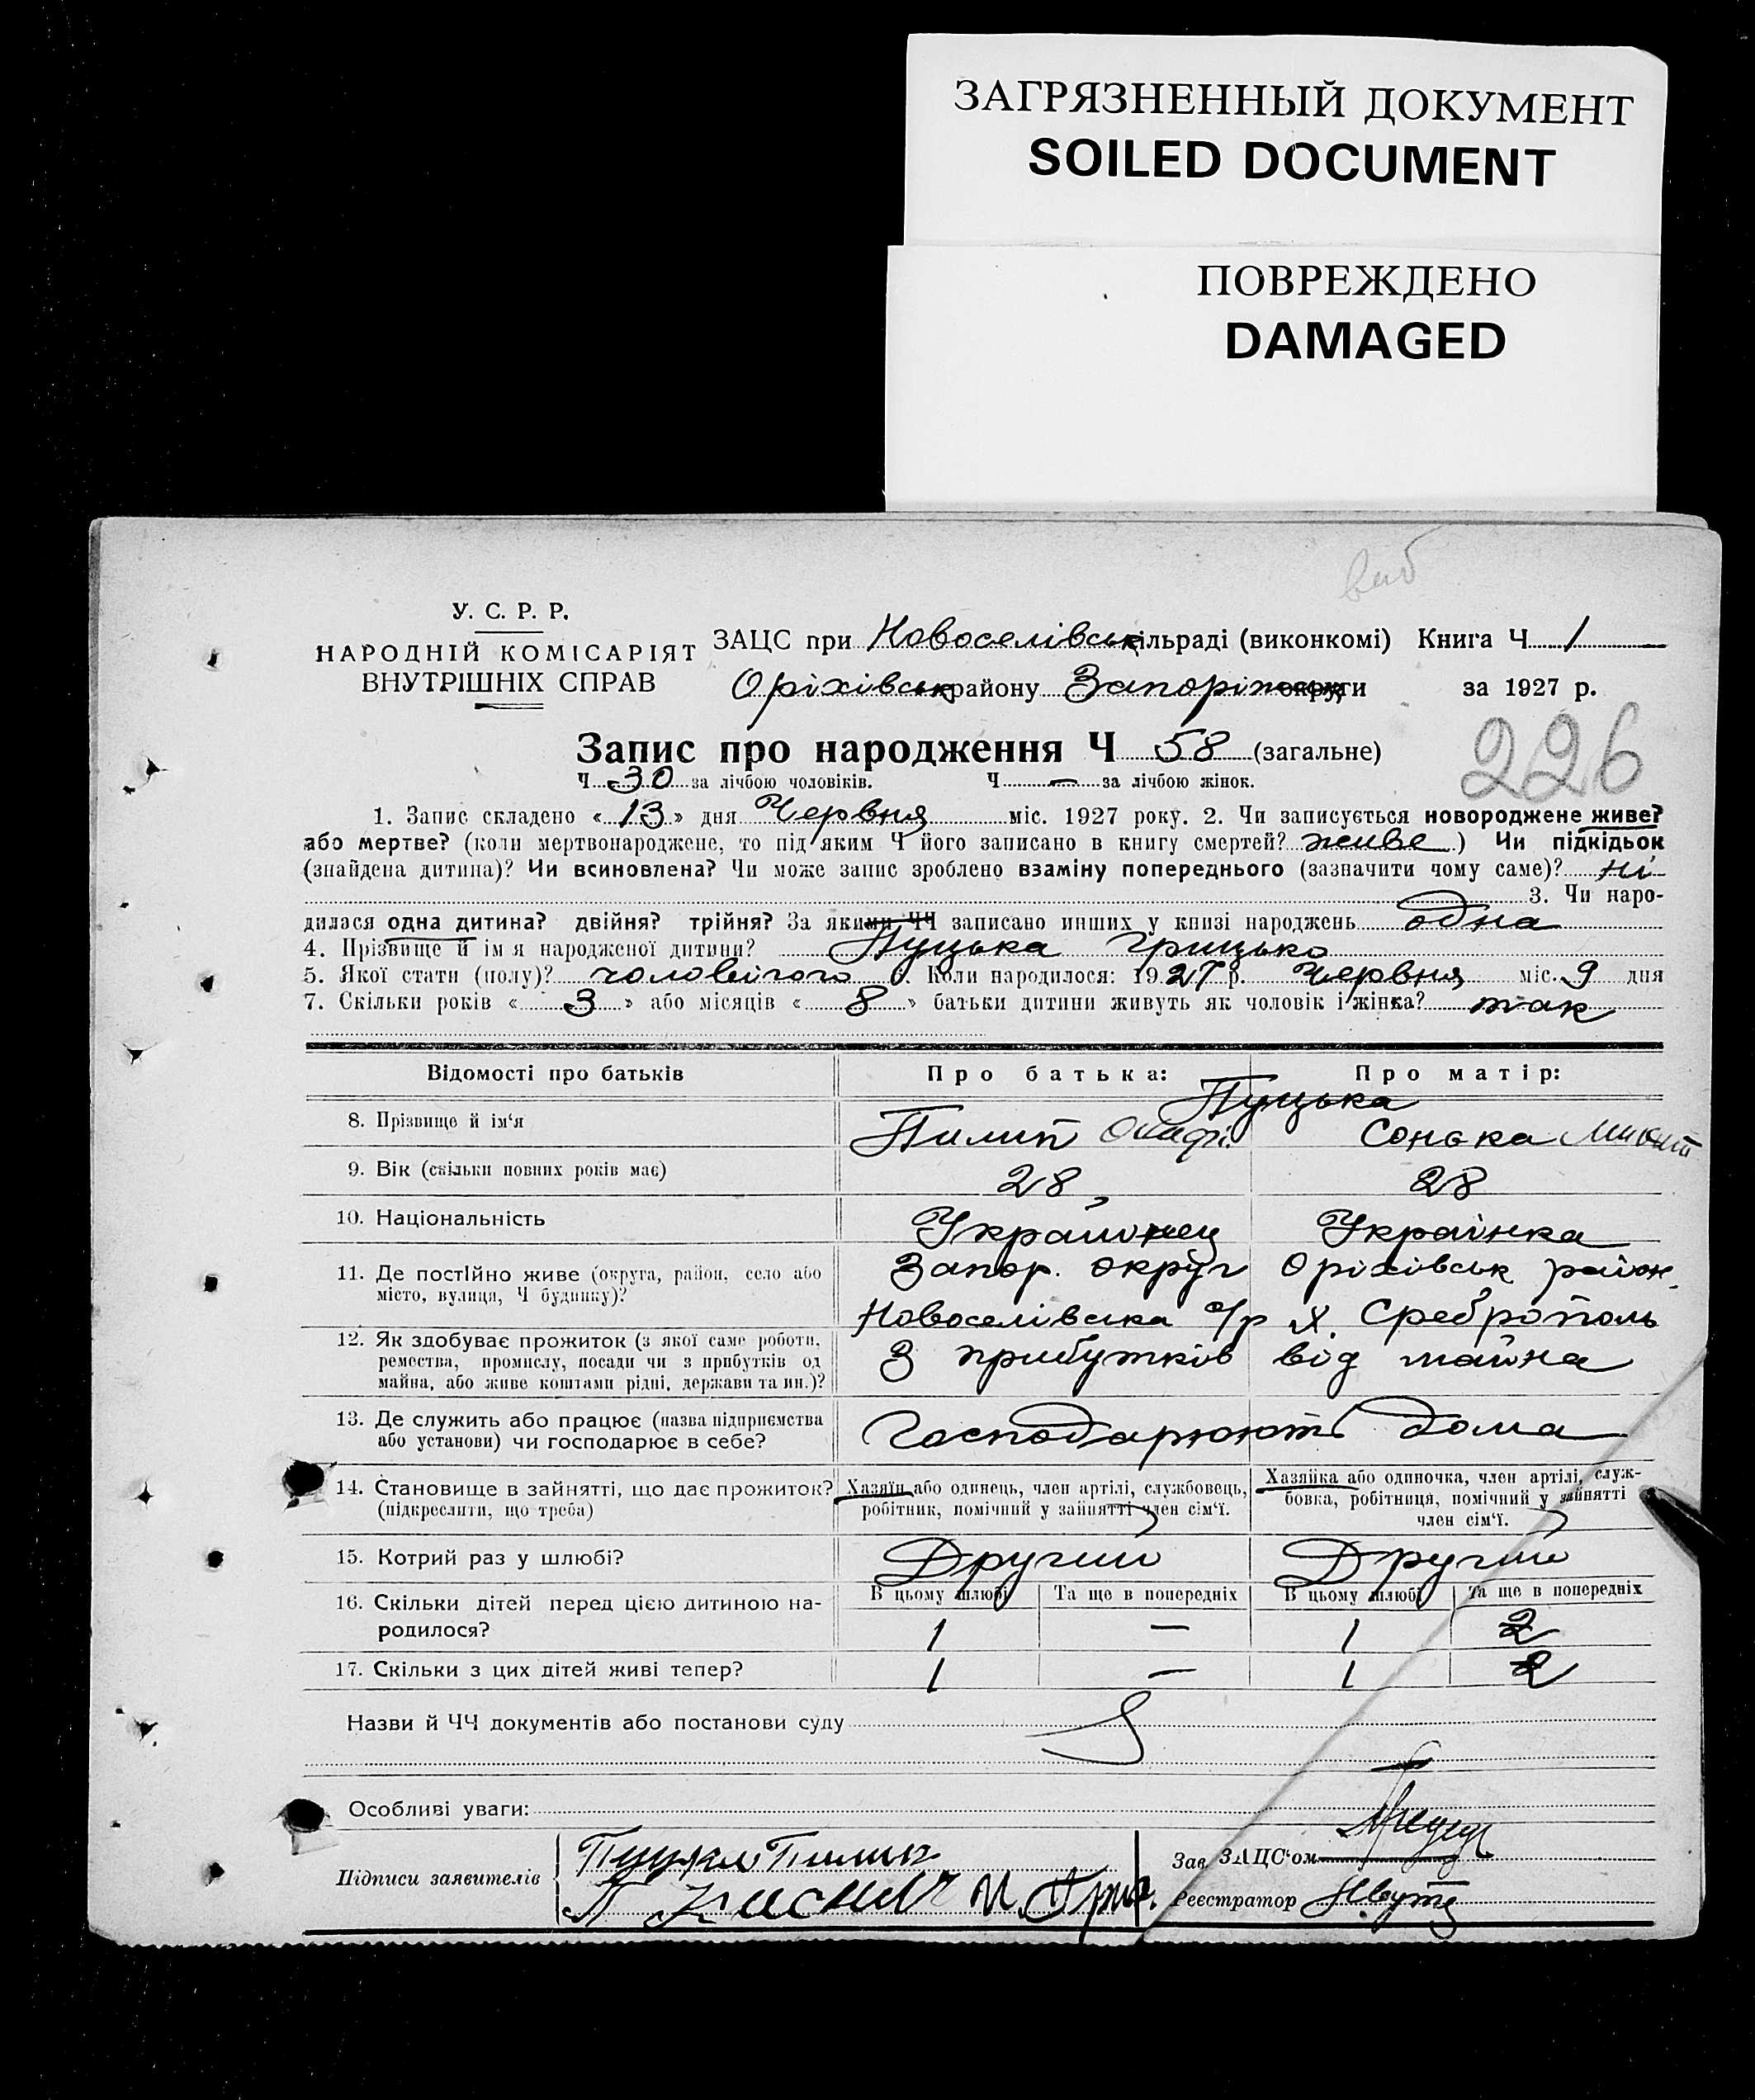 ЗАГРЯЗНЕННЫЙ ДОКУМЕНТ
SOILED DOCUMENT
ПОВРЕЖДЕНО
DAMAGED
У. С. Р. Р.
НАРОДНІЙ КОМІСАРІЯТ
ВНУТРІШНІХ СПРАВ
ЗАЦС при Новоселівськ ільраді (виконкомі) Книга Ч 1
Оріхівськ району Запоріжськ округи за 1927 р.
Запис про народження Ч 58 (загальне)
226
Ч 30 за лічбою чоловіків. Ч — за лічбою жінок.
1. Запис складено « 13 » дня Червня міс. 1927 року. 2. Чи записується новороджене живе?
або мертве? (коли мертвонароджене, то під яким Ч його записано в книгу смертей? живе ) Чи підкідьок
(знайдена дитина)? Чи всиновлена? Чи може запис зроблено взаміну попереднього (зазначити чому саме)? Ні
3. Чи наро-
дилася одна дитина? двійня? трійня? За якими ЧЧ записано инших у книзі народжень одна
4. Прізвище й ім я народженої дитини? Пуцька Грицько
5. Якої стати (полу)? чоловічого 6. Коли народилося: 1927 р. Червня міс. 9 дня
7. Скільки років « 3 » або місяців « 8 » батьки дитини живуть як чоловік і жінка? так
Відомості про батьків Про батька: Про матір:
Пуцька
8. Прізвище й ім‘я Пилип Сонька
9. Вік (скільки повних років має) 28 28
10. Національність Украінец Украінка
11. Де постійно живе (округа, район, село або Запор. округ Оріхівськ район.
місто, вулиця, Ч будинку)? Новоселівська с/р х. Среброполь
12. Як здобуває прожиток (з якої саме роботи, З прибутків від майна
ремества, промислу, посади чи з прибутків од
майна, або живе коштами рідні, держави та ин.)?
13. Де служить або працює (назва підприємства Господарюють дома
або установи) чи господарює в себе?
14. Становище в зайнятті, що дає прожиток? Хазяїн або одинець, член артілі, службовець, Хазяйка або одиночка, член артілі, служ-
(підкреслити, що треба) робітник, помічний у зайнятті член сім‘ї. бовка, робітниця, помічний у зайнятті
член сім‘ї.
15. Котрий раз у шлюбі? Другий Другий
16. Скільки дітей перед цією дитиною на- В цьому шлюбі Та ще в попередніх В цьому шлюбі Та ще в попередніх
родилося? 1 — 1 2
17. Скільки з цих дітей живі тепер? 1 — 1 2
Назви й ЧЧ документів або постанови суду
Особливі уваги:
Підписи заявителів Пуцька Пилип
Зав. ЗАЦС‘ом
Реєстратор